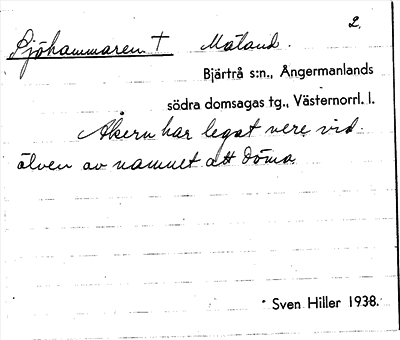 2.
Sjöhammaren † Måland.
Bjärtrå s:n., Ångermanlands
södra domsagas tg., Västernorrl. l.
Åkern har legat nere vid
älven av namnet att döma
Sven Hiller 1938.